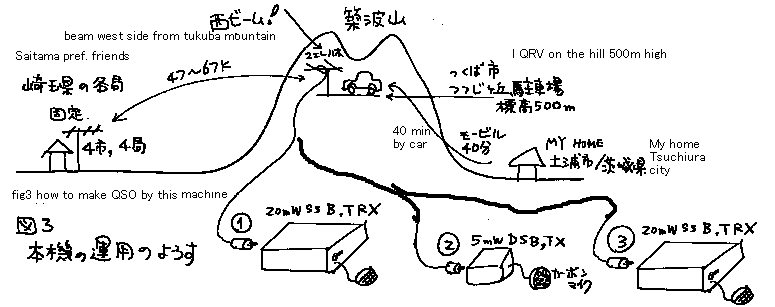 西ビーム!
築波山
beam west side from tukuba mountain
2エレHB9
Saitama pref. friends
I QRV on the hill 500m high
崎玉県の各局
47〜67K
つくば市
つつじヶ丘駐車場
標高500m
固定
4市,4局
40 min
by car
モービル
40分
MY HOME
土浦市/茨城県
My home
Tsuchiura
city
fig3 how to make QSO by this machine
図3
本機の運用のようす
①
20mW SSB,TRX
②
5mW DSB,TX
カーボン
マイク
③
20mW SSB,TRX